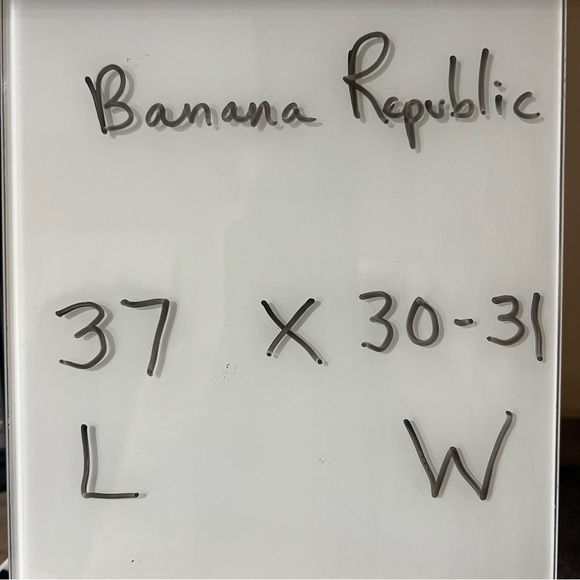 Banana Republic
37 X 30-31
L W